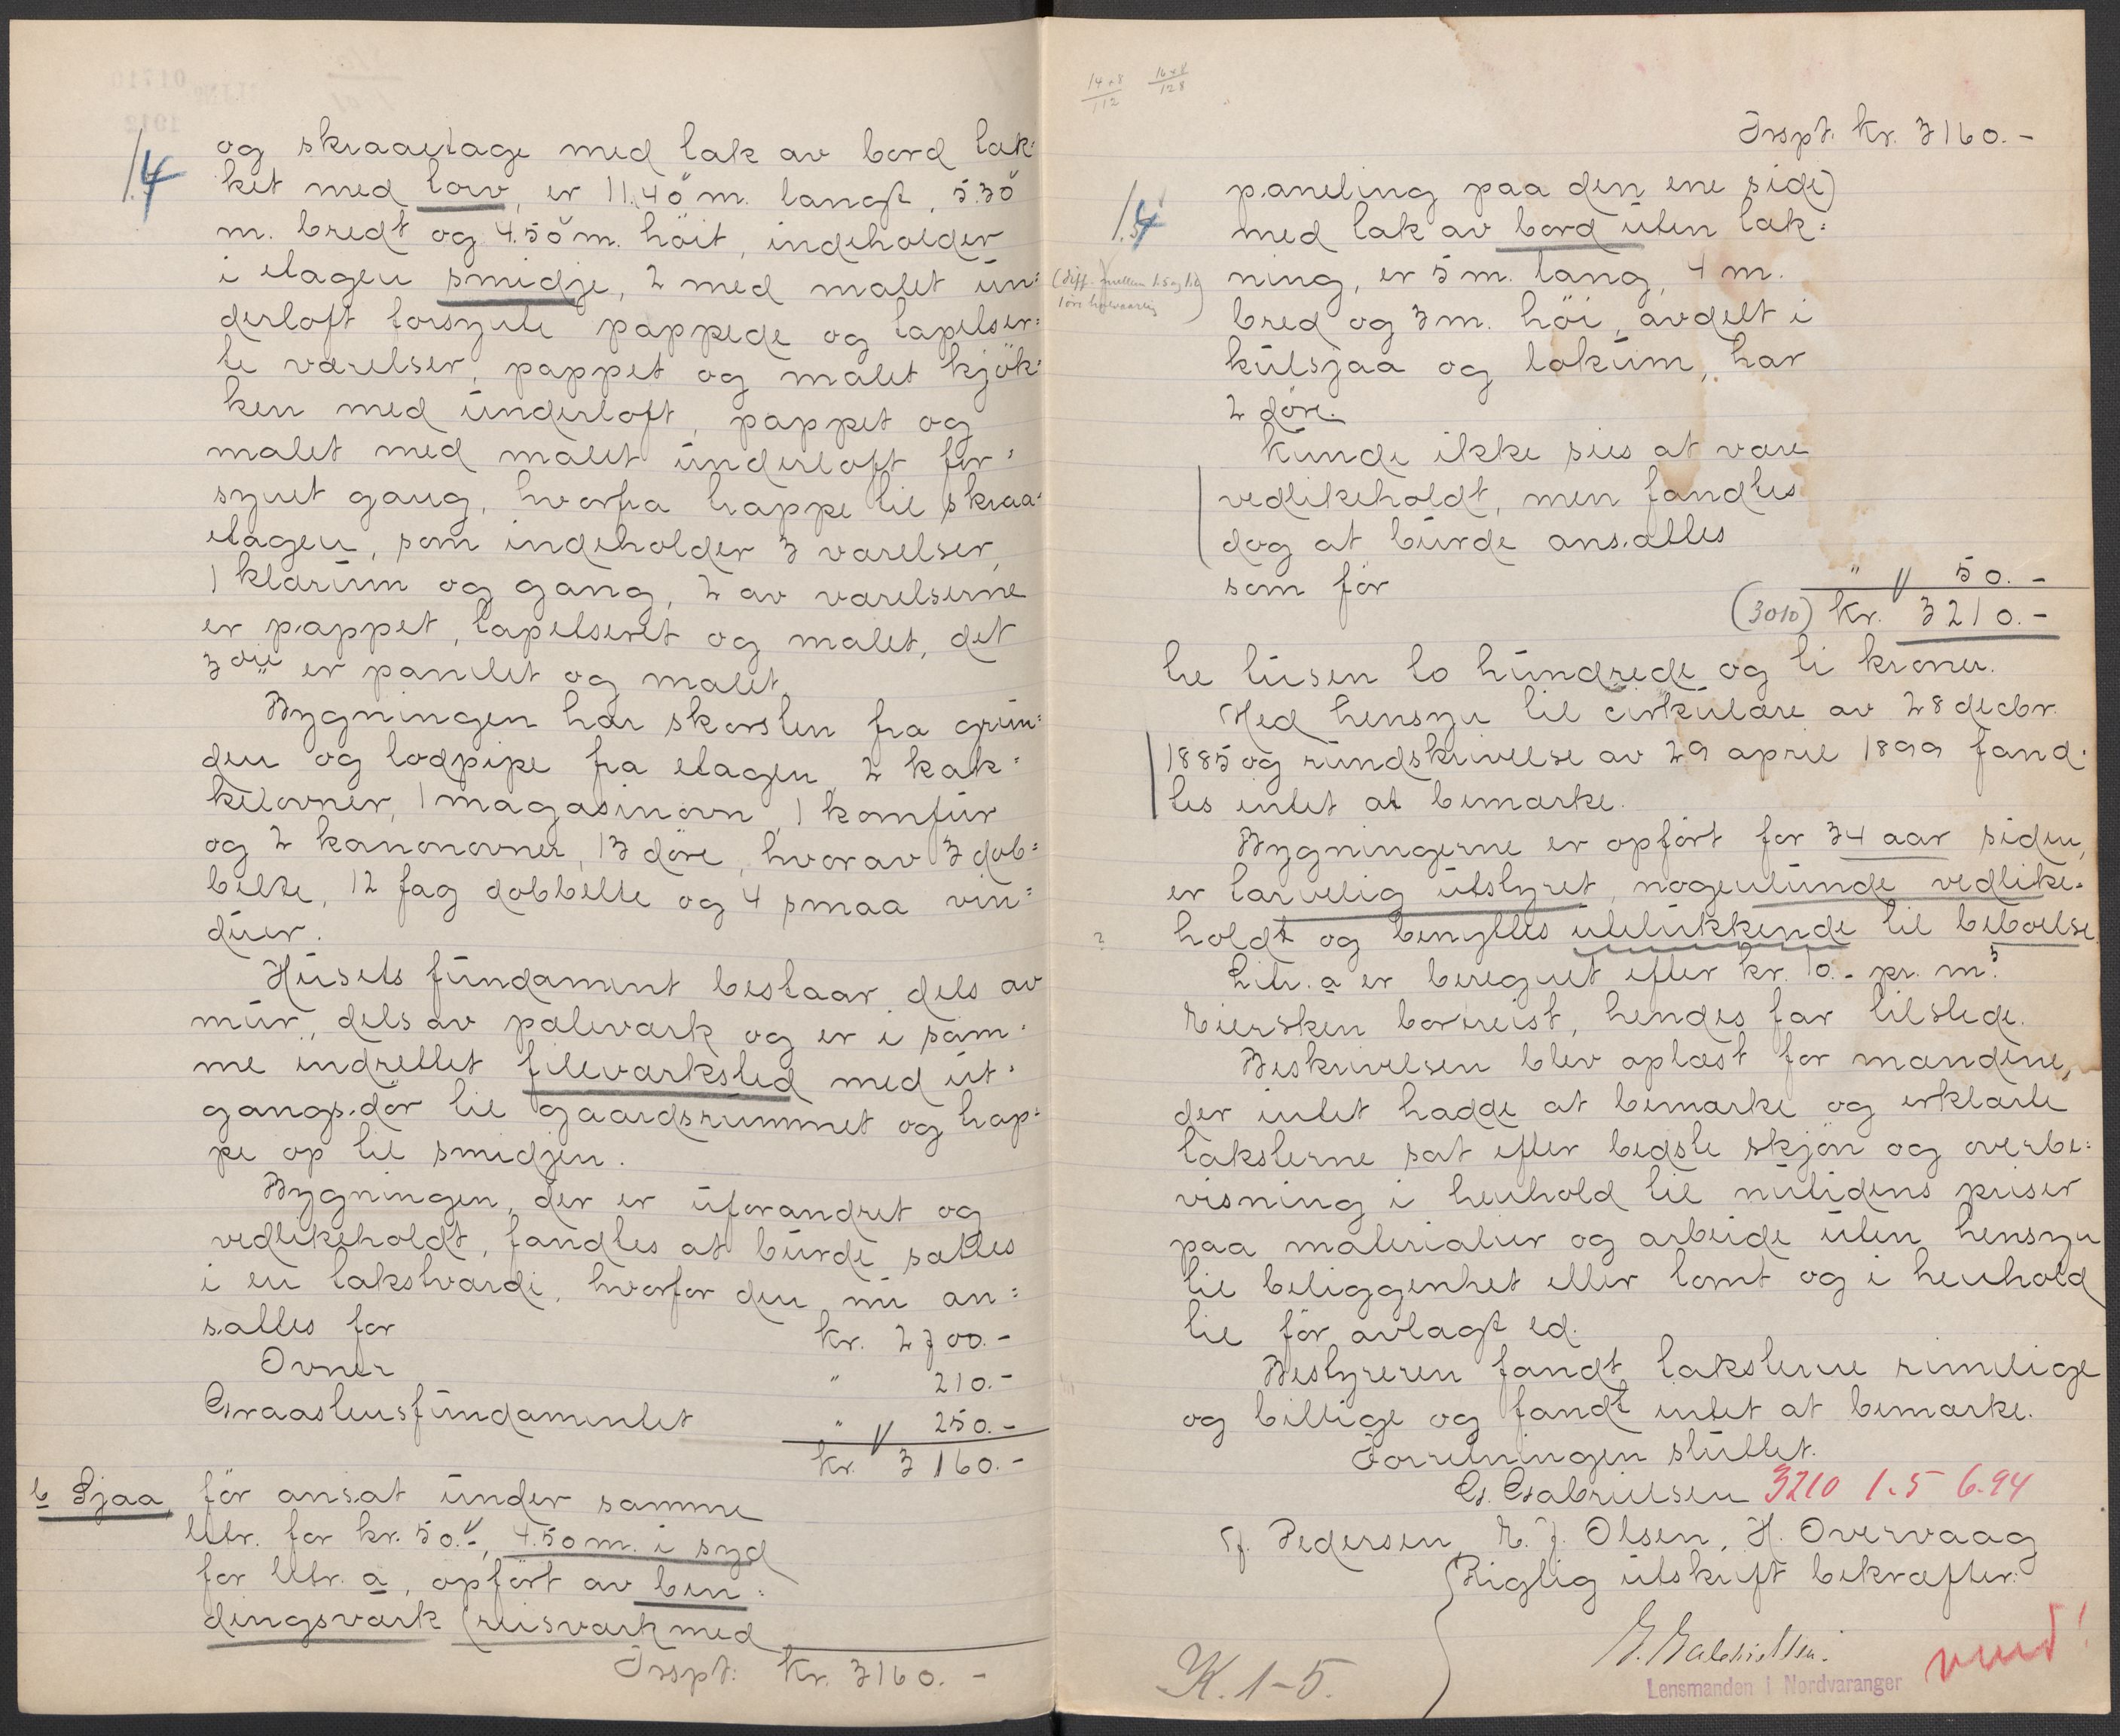 1.4
og skraaetage med tak av bord tæk=
ket med torv, er 11.40 m. langt, 5.30
m. bredt og 4.50 m. høit, indeholder
i etagen smidje, 2 med malet un=
derloft forsynte pappede og tapetser=
te værelser, pappet og malet kjøk=
ken med underloft, pappet og
malet med malet underloft for=
synet gang, hvorfra trappe til skraa=
etagen, som indeholder 3 værelser,
1 klærum og gang, 2 av værelserne
er pappet, tapetseret og malet, det
3die er panelet og malet.
Bygningen har skorsten fra grun=
den og lodpipe fra etagen, 2 kak=
kelovner, 1 magasinovn, 1 komfur
og 2 kanonovner, 13 døre, hvorav 3 dob=
belte, 12 fag dobbelte og 4 smaa vin=
duer.
Husets fundament bestaar dels av
mur, dels av pæleværk og er i sam=
me indrettet fileværksted med ut=
gangsdør til gaardsrummet og trap=
pe op til smidjen.
Bygningen, der er uforandret og
vedlikeholdt, fandtes at burde sættes
i en takstværdi, hvorfor den nu an=
sattes for kr. 2700.-
Ovner " 210.-
Graastensfundamentet " 250.-
kr. 3160.-
b Sjaa, før ansat under samme
litr. for kr. 50.-, 4.50 m. i syd
for litr. a, opført av bin=
dingsværk (reisværk med
Trspt: kr. 3160.-
14×8
112
16×8
128
Trspt. kr. 3160.-
1.4
(diff. mellem 1.5 og 1.4
paneling paa den ene side)
med tak av bord uten tæk=
ning, er 5 m. lang, 4 m.
bred og 3 m. høi, avdelt i
kulsjaa og lokum, har
2 døre.
Kunde ikke sies at være
vedlikeholdt, men fandtes
dog at burde ansættes
som før " 50.-
(3010) kr. 3210.-
tre tusen to hundrede og ti kroner.
Med hensyn til cirkulære av 28 decbr.
1885 og rundskrivelse av 29 april 1899 fand=
tes intet at bemærke.
Bygningerne er opført for 34 aar siden,
er tarvelig utstyret, nogenlunde vedlike=
? holdt og benyttes utelukkende til beboelse.
Litr. a er beregnet efter kr. 10.- pr. m³.
Eiersken bortreist, hendes far tilstede.
Beskrivelsen blev oplæst for mændene,
der intet hadde at bemærke og erklærte
taksterne sat efter bedste skjøn og overbe=
visning i henhold til nutidens priser
paa materialier og arbeide uten hensyn
til beliggenhet eller tomt og i henhold
til før avlagt ed.
Bestyreren fandt taksterne rimelige
og billige og fandt intet at bemærke.
Forretningen sluttet.
G. Gabrielsen 3210 1.5 6.94
J. Pedersen, E. J. Olsen, H. Overvaag
Rigtig utskrift bekræfter:
G. Gabrielsen.
Lensmanden i Nordvaranger
K. 1-5.